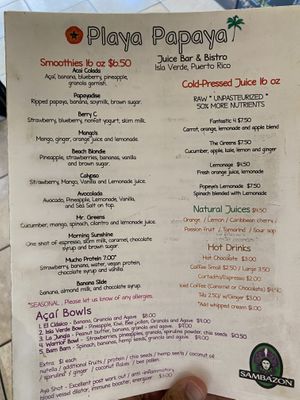 Playa Papaya
Smoothies 16 oz $6.50
Juice Bar & Bistro
Isla Verde, Puerto Rico
Acai Colada
Açaí, banana, blueberry, pineapple,
granola garnish.
Cold-Pressed Juice 16 oz
RAW * UNPASTEURIZED *
50% MORE NUTRIENTS
Papayadise
Ripped papaya, banana, soymilk, brown sugar.
Berry C
Strawberry, blueberry, nonfat yogurt, skim milk.
Mango's
Mango, ginger, orange juice and lemonade.
Beach Blondie
Pineapple, strawberries, bananas, vanilla
and brown sugar.
Calypso
Strawberry, Mango, Vanilla and Lemonade.
Avocolada
Avocado, Pineapple, Vanilla,
and Sea Salt on top.
Mr. Greens
Cucumber, mango, spinach, cilantro and lemonade.
Morning Sunshine
One shot of espresso, skim milk, caramel, chocolate
syrup and brown sugar.
Mucho Protein 7.00
Strawberry, banana, water, vegan protein,
chocolate syrup and vanilla
Banana Slide
Banana, almond milk, and chocolate syrup.
Fantastic 4 $7.50
Carrot, orange, lemonade and apple blend
The Greens $7.50
Cucumber, apple, lime, lemon and ginger
Lemonage $4.50
Fresh orange juice, lemonade
Popeye's Lemonade $7.50
Spinach and Lemonade
Natural Juices $4.50
Orange / Lemon / Caribbean cherry /
Passion fruit / Tamarind / Sour sop
Hot Drinks
Hot Chocolate $3.00
Coffee Small $2.50 / Large 3.50
Cortadito/Espresso $3.00
Iced Coffee (Caramel or Chocolate) $4.50
Tea 2.50/ w/Ginger $3.00
*Add whipped cream $1.00
*SEASONAL. Please let us know of any allergies.
Açaí Bowls
1. El Clásico - Banana, Granola and Agave $8.00
2. Isla Verde Bowl - Pineapple, Kiwi, Bee pollen, Granola and Agave
3. La Jungla - Peanut butter, banana, granola and agave
4. Warrior Bowl - Strawberries, pineapples, granola, spirulina powder, chia seeds
5. Bam Bam - Spinach, bananas, hemp seeds, granola and agave
Extra $1 each
nutella / additional Fruits / protein / chia seeds / hemp seeds / coconut oil
/ spirulina / ginger / coconut flakes / bee pollen
Aça Shot - Excellent post work out / anti inflammatory,
blood vessel dilator, immune booster, energizer $3.00
SAMBAZON